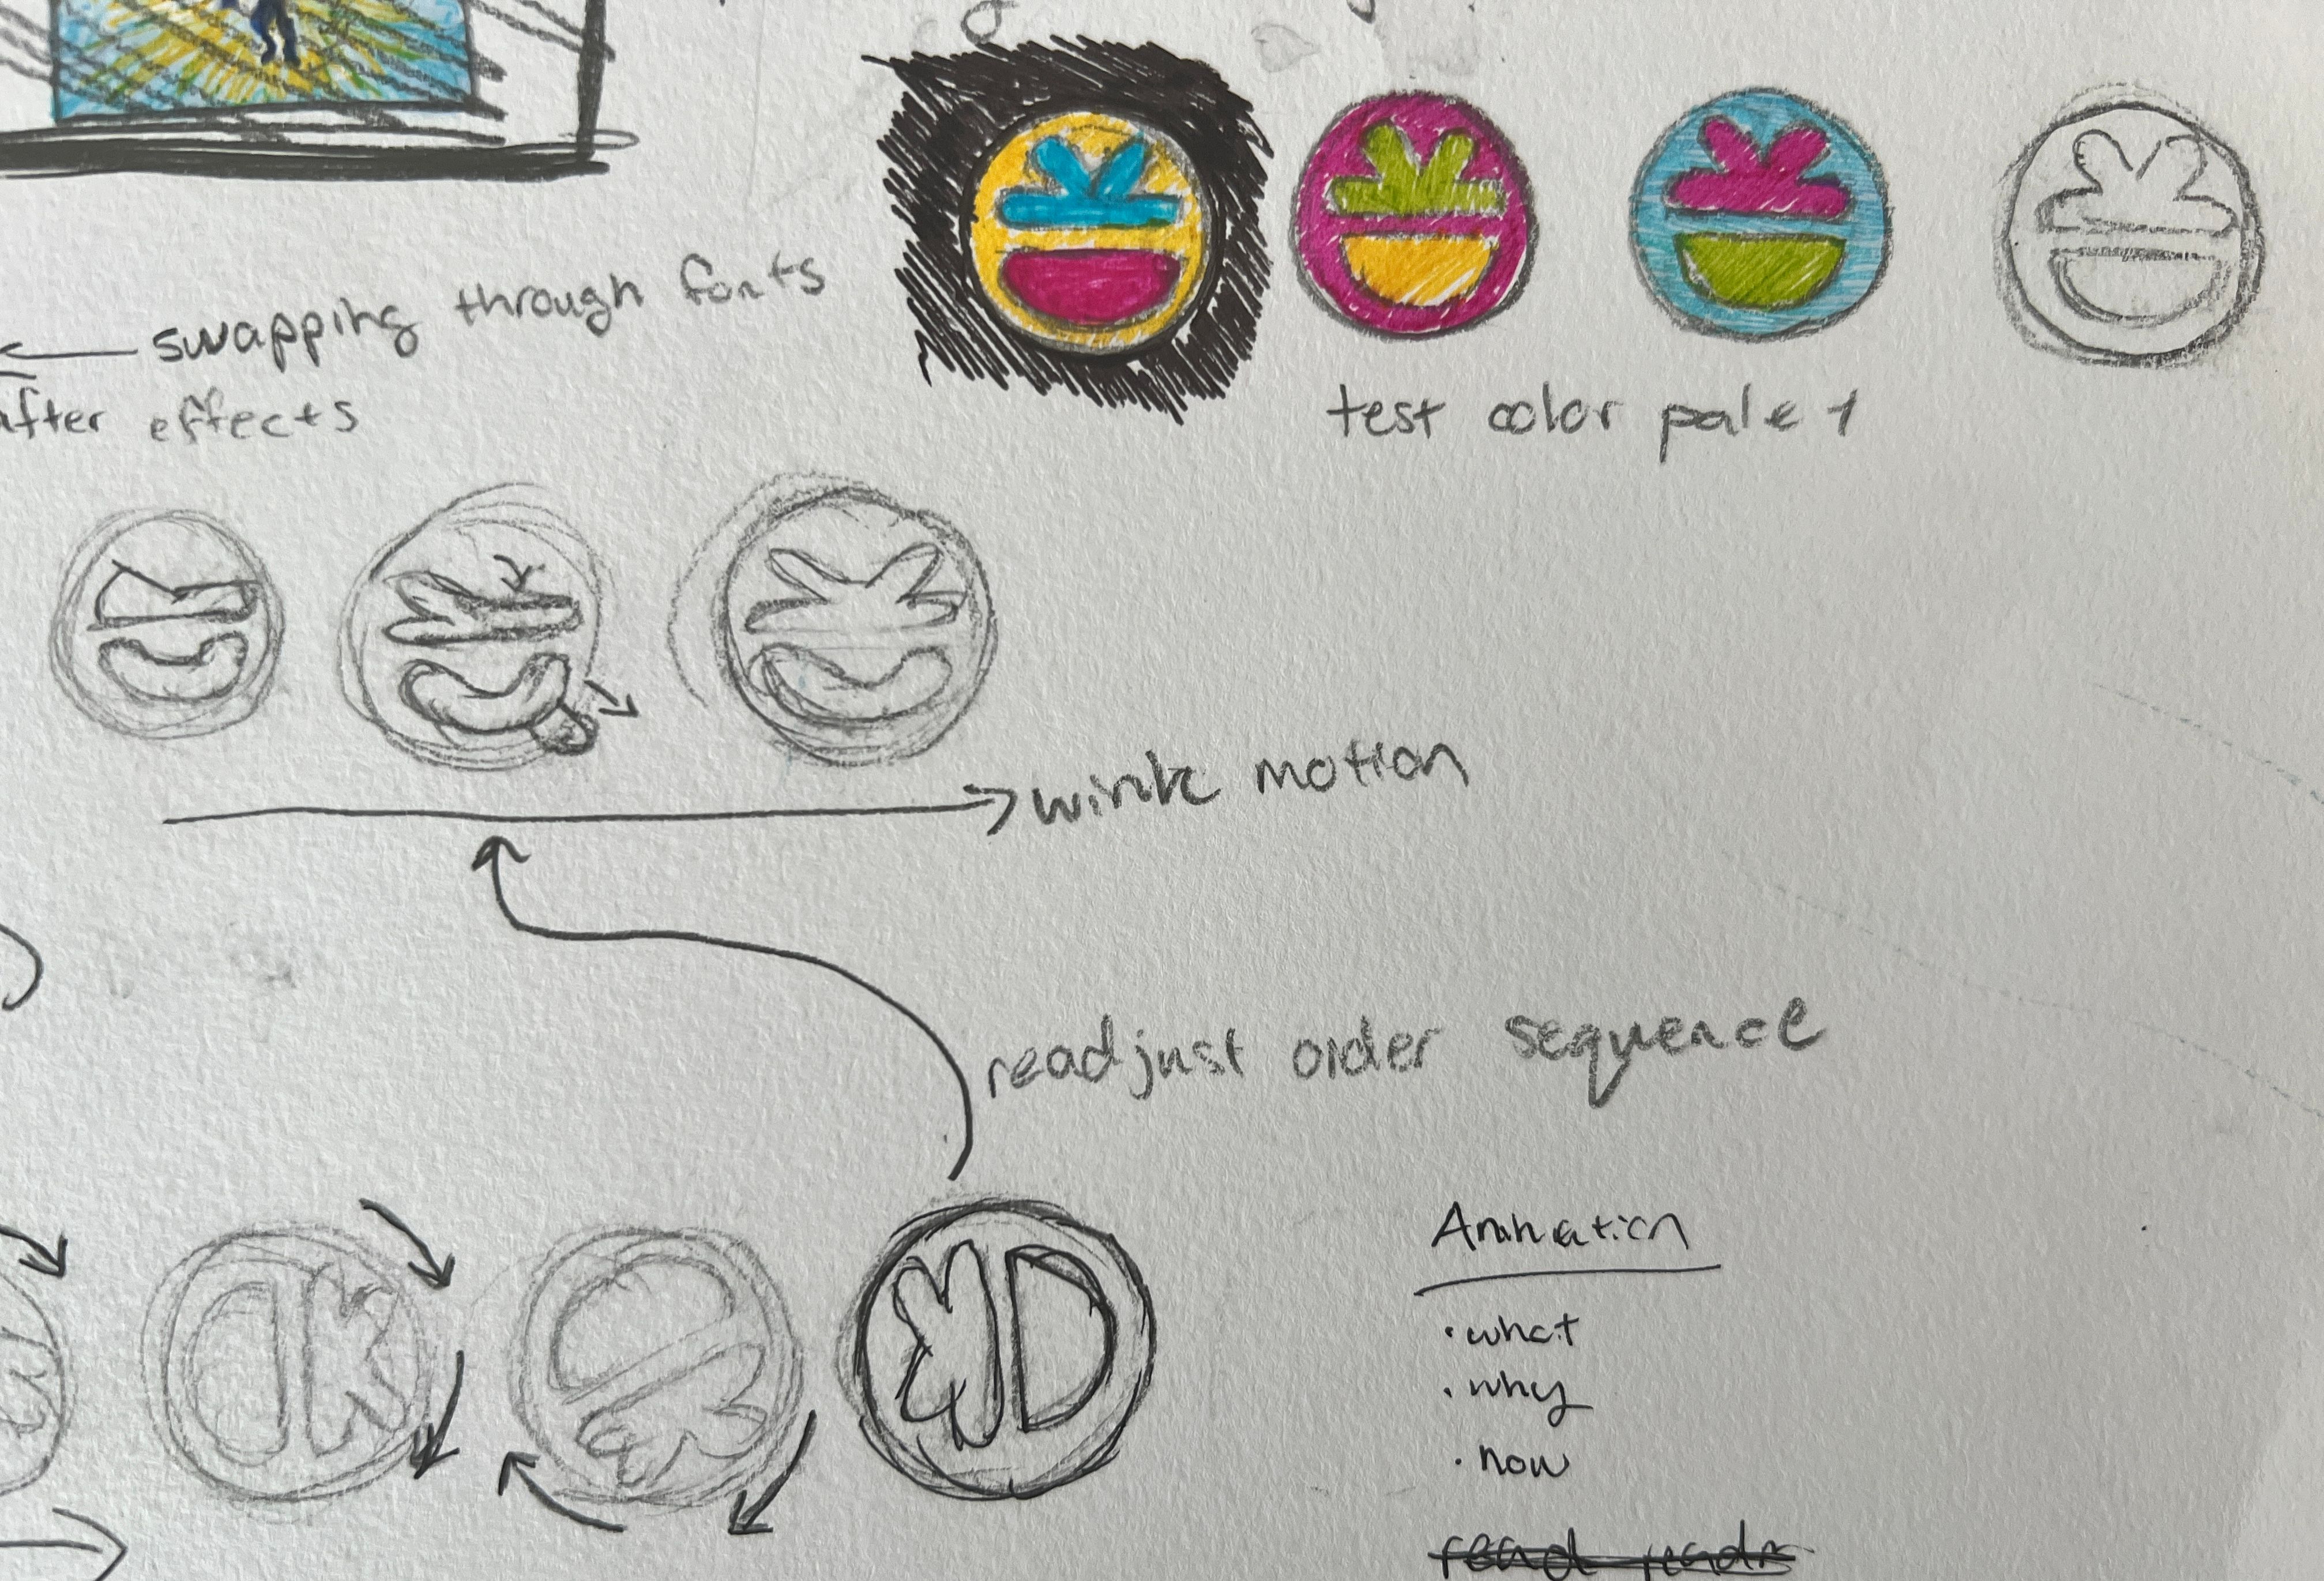 swapping through fonts
after effects
test color palet
wink motion
readjust order sequence
Animation
• what
• why
• how